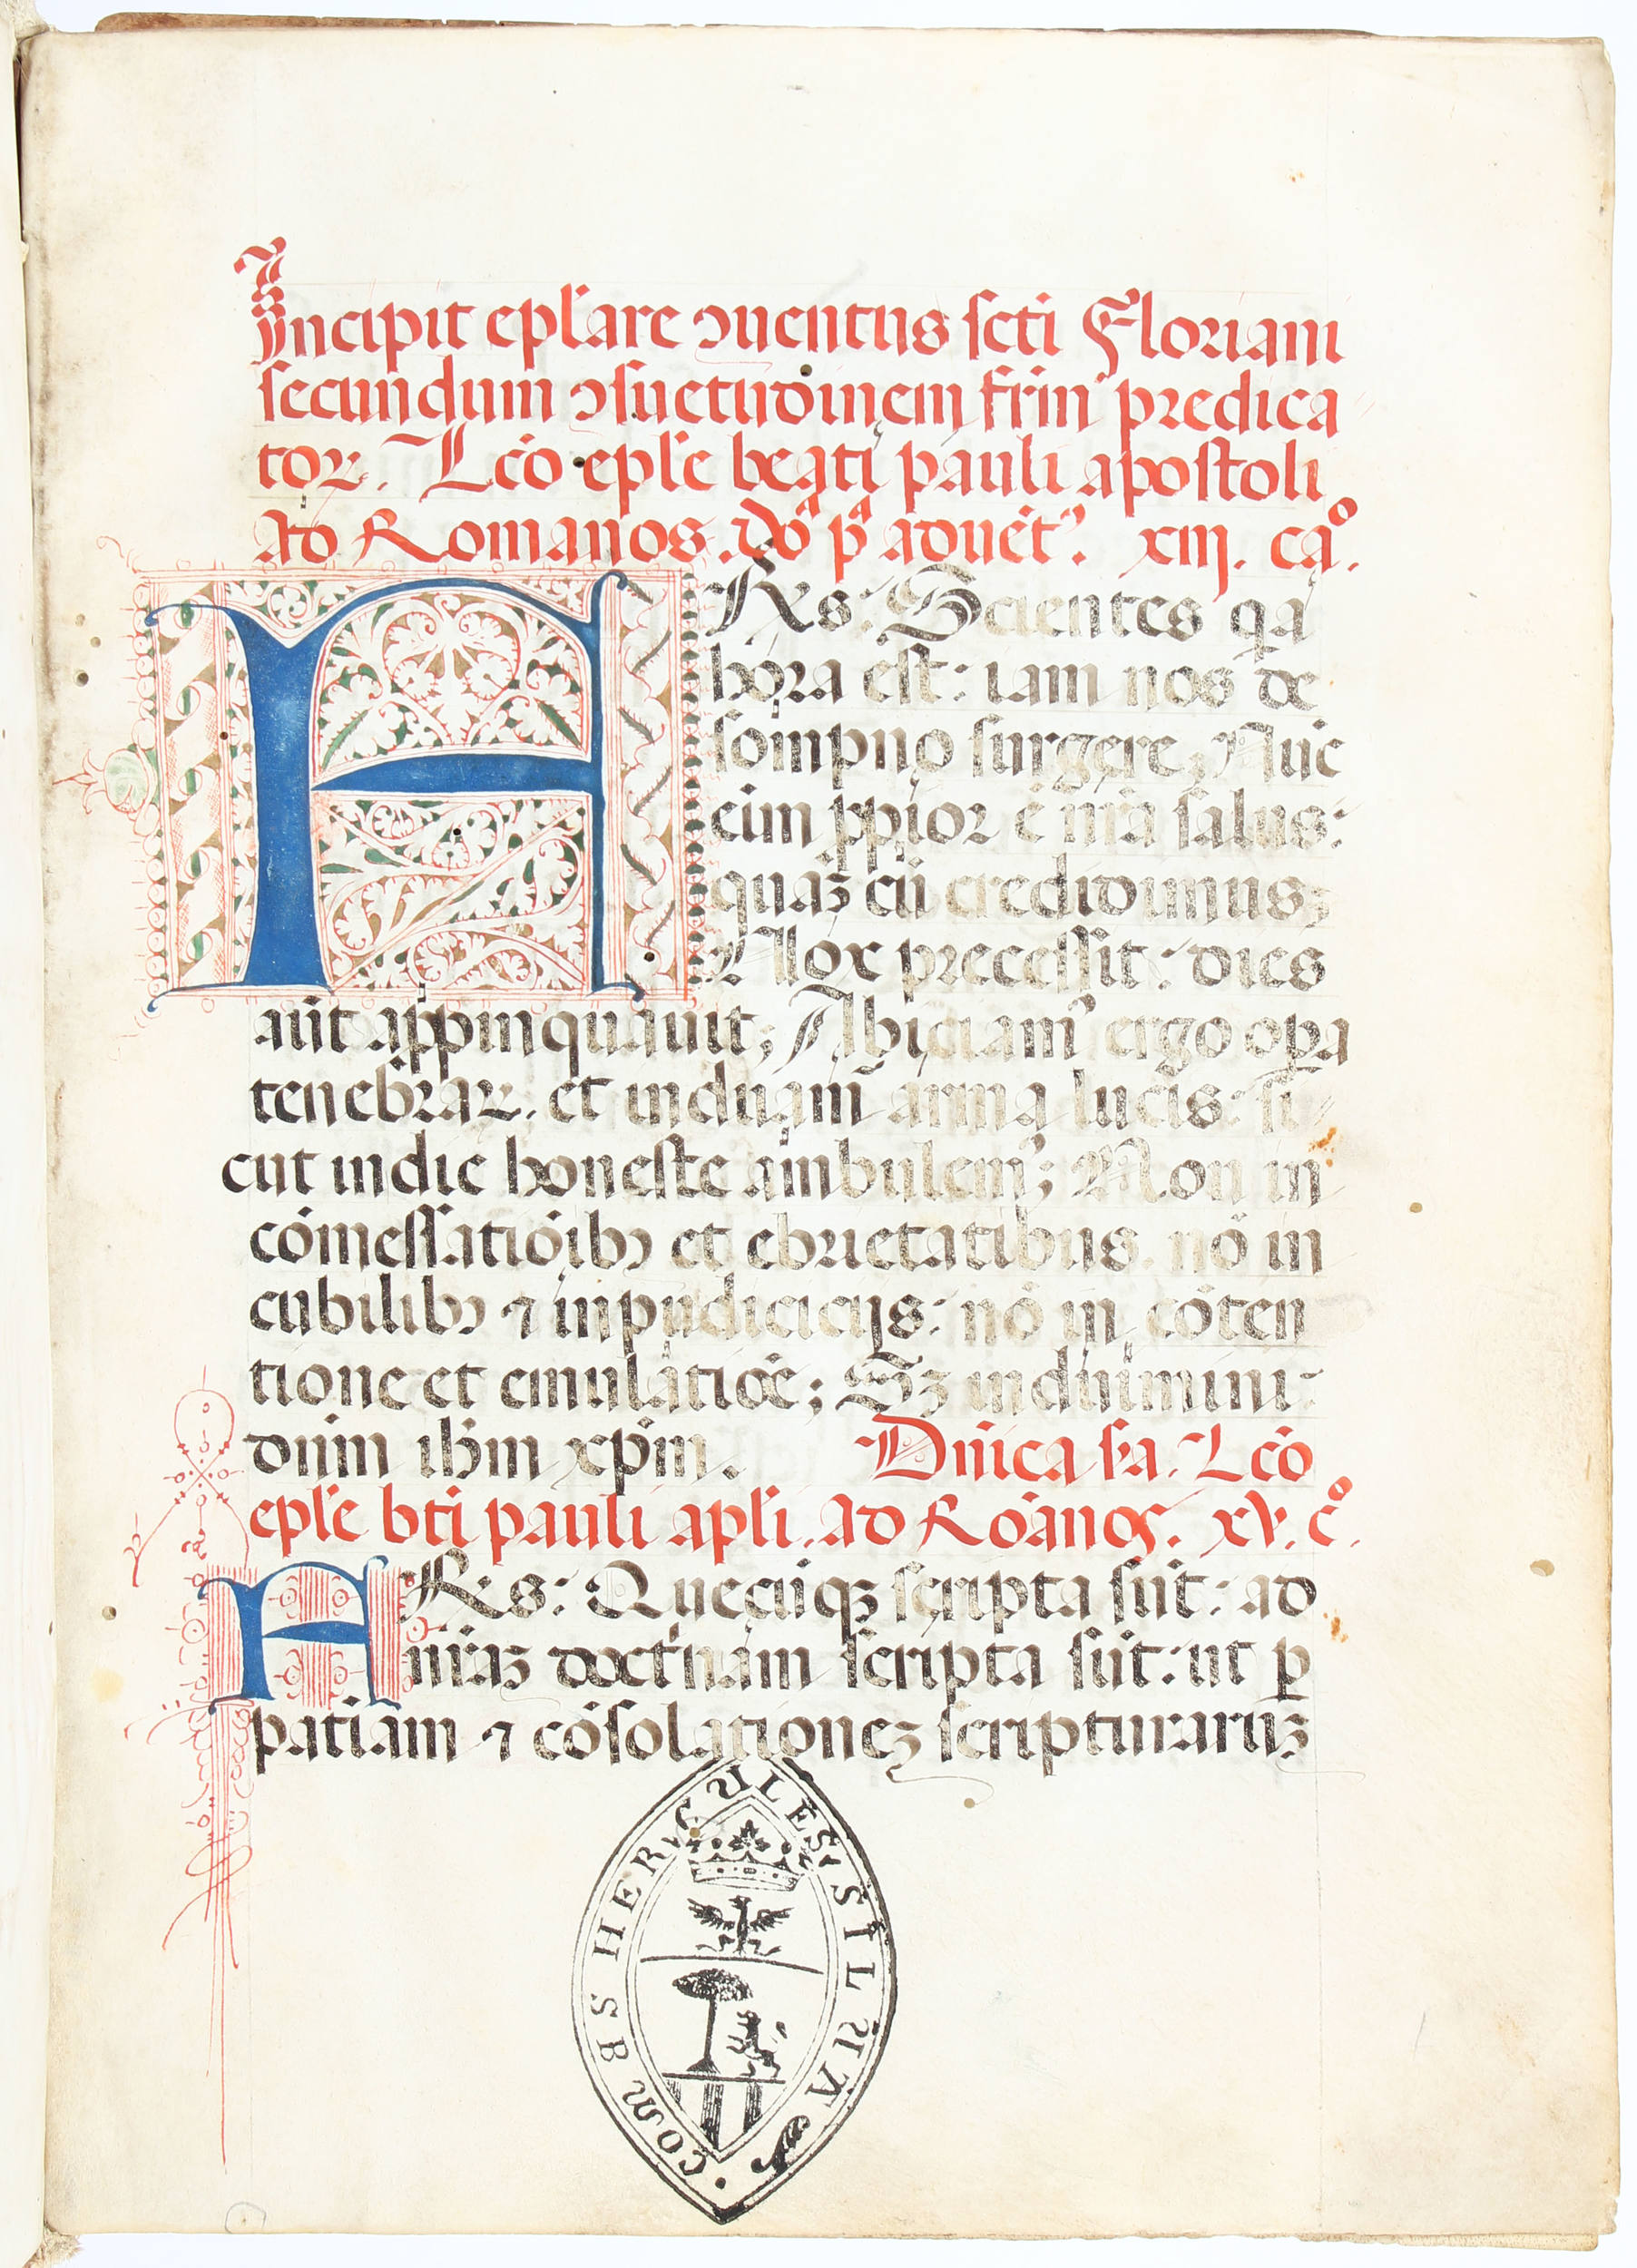 Incipit epl'are ↄuentus scti Floriani
secundum ↄsuetudinem fr̄m predica
toꝝ. Lc̄o epl'e beati pauli apostoli
Ad Romanos. do͞ pᵃ aduēt᾽. xiij. caº.
FRs: Scientes qꝛa
hora est: iam nos de
sompno surgere; Nūc
eim ꝓpior ē nr̄a salus:
quaꝫ cū credidimus;
Nox precessit: dies
aūt apꝓpinquauit; Abiciam᾽ ergo oꝑa
tenebraꝝ. et induam᾽ arma lucis: si
cut in die honeste ambulem᾽; Non in
cōmessatiōibꝫ et ebrietatibus. nō in
cubilibꝫ ⁊ inpudicicijs: nō in cōten
tione et emulatiōe; Sꝫ induimini
dn̄m ih̄m xp̄m. Dn̄ica sᵃa. Lc̄o
epl'e bt̄i pauli apl'i. Ad Ro᷑anos. xv. cº.
FRs: Quecūqꝫ scripta sūt: ad
nr̄aꝫ doctⁱnam scripta sūt: ut ꝑ
patiam ⁊ cōsolationeꝫ scripturarūꝫ
COM BS HERCULES SILUA